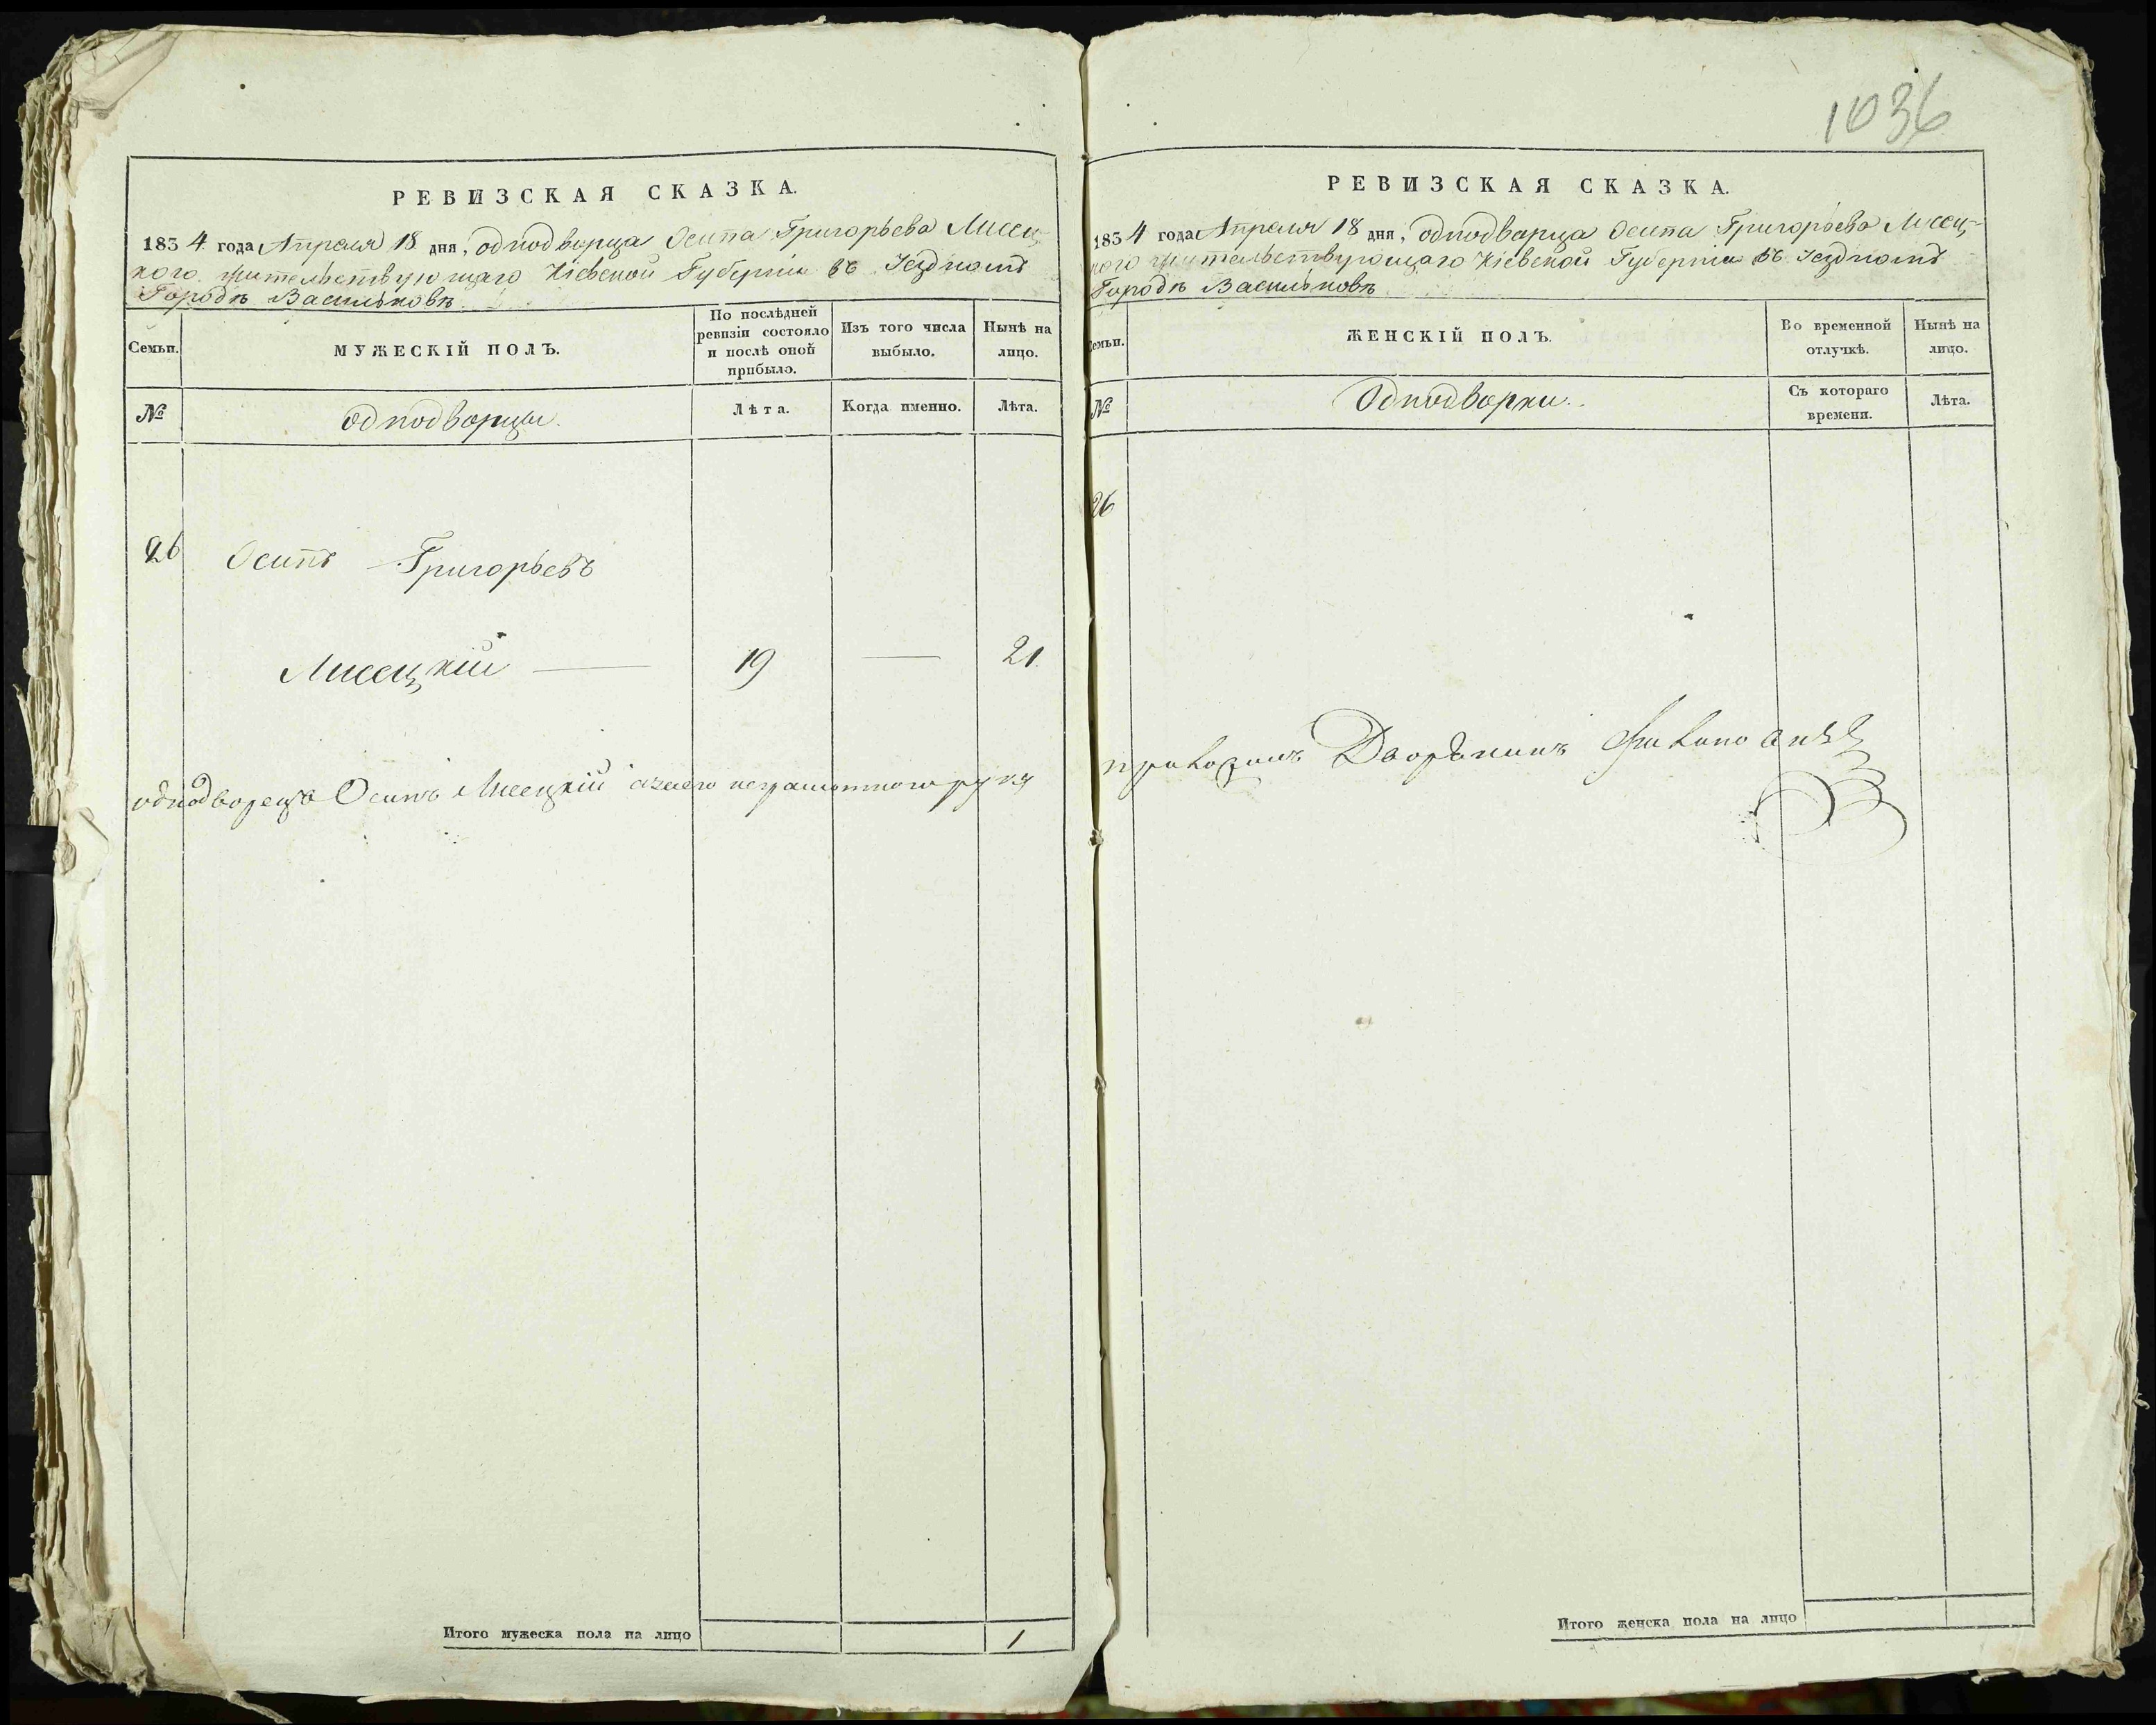 1036
РЕВИЗСКАЯ СКАЗКА.
1834 года Апреля 18 дня, однодворца Осипа Григорьева Лисец-
кого жительствующаго Кіевской Губерніи въ Уездномъ
Городѣ Васильковѣ
Семьи.
МУЖЕСКІЙ ПОЛЪ.
По послѣдней ревизіи состояло и послѣ оной прибыло.
Изъ того числа выбыло.
Нынѣ на лицо.
№
Однодворцы.
Лѣта.
Когда именно.
Лѣта.
26 Осипъ Григорьевъ
Лисецкій — 19 — 21.
однодворецъ Осипъ Лисецкій азанего неграмотного рукя
Итого мужеска пола на лицо 1
РЕВИЗСКАЯ СКАЗКА.
1834 года Апреля 18 дня, однодворца Осипа Григорьева Лисец-
кого жительствующаго Кіевской Губерніи въ Уездномъ
Городѣ Васильковѣ
Семьи.
ЖЕНСКІЙ ПОЛЪ.
Во временной отлучкѣ.
Нынѣ на лицо.
№
Однодворки.
Съ котораго времени.
Лѣта.
26
Дворянинъ
Итого женска пола на лицо